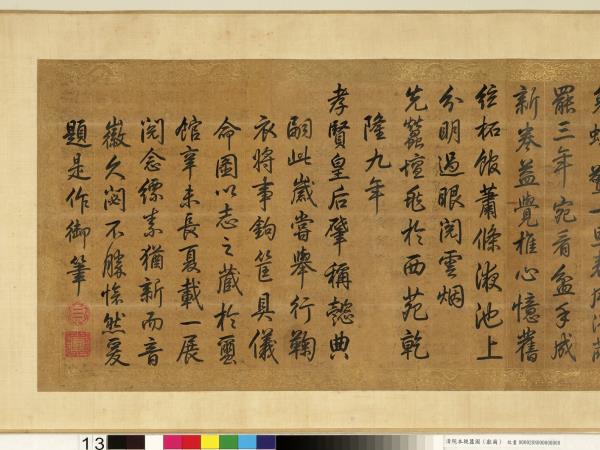 罷三年宛看盆手成
新卷益覺椎心憶舊
絃柘館蕭條液池上
分明過眼閱雲烟
先蠶壇於西苑乾
隆九年
孝賢皇后肇稱懿典
嗣此歲嘗舉行鞠
衣將事鉤筐具儀
命圖以志之藏於蠒
館辛未長夏載一展
閱念縹素猶新而音
徽久閟不勝愴然爰
題是作御筆
13
清院本親蠶圖（獻繭）